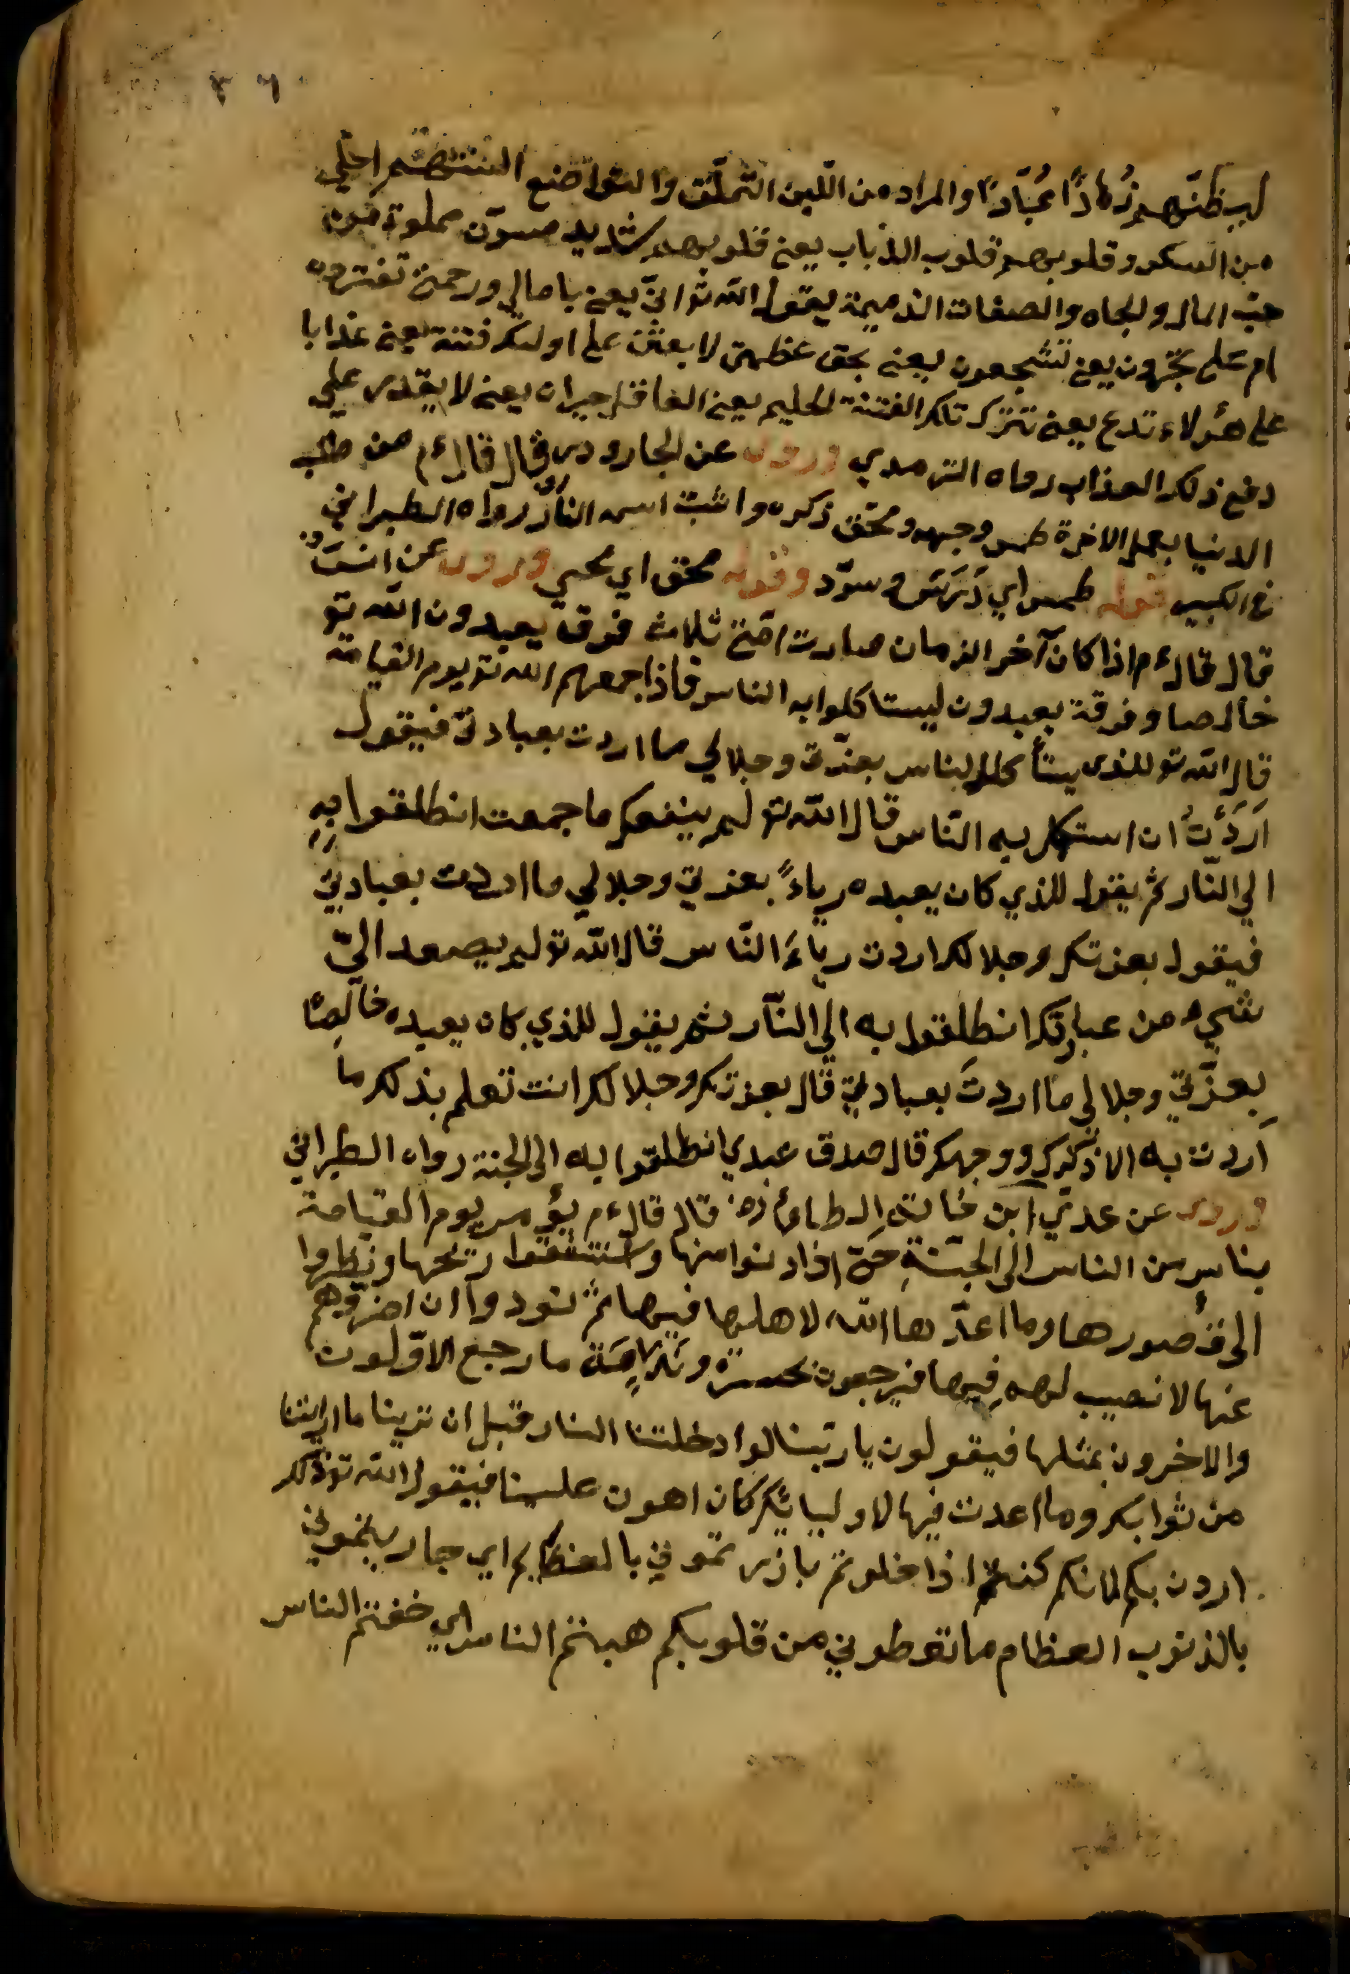 ٣٦
ليظنّهم زُهّادًا عُبّادًا والمراد من اللّين التّملّق والتواضع السنتهم احلي
من السكر وقلوبهم قلوب الذباب يعني قلوبهم شديد مسوّن مملوة من
حبّ المال والجاه والصفات الذميمة يقول الله تو انيّ يعني بامهالي ورحمتي تفترون
ام علي تجترون يعني تتشجعون يعني بحق عظمتي لابعثن علي اولئك فتنة يعني عذابا
علي هؤلاء تدع يعني تترك تلك الفتنة الحليم يعني العاقل حيران يعني لا يقدر علي
دفع ذلك العذاب رواه الترمدي وروى عن الجارود رض قال قال ءم من طلب
الدنيا بعمل الاخرة طمس وجهه ومحق ذكره واثبت اسمه النار رواه الطبراني
في الكبير قوله طمس اي دَرَسَ وسوّد وقوله محق اي محي وروى عن انس رض
قال قال ءم اذا كان آخر الزمان صارت امّتي ثلاث فرق يعبدون الله تو
خالصا وفرقة يعبدون ليستاكلوا به الناس فاذا جمعهم الله تو يوم القيامة
قال الله تو للذى يستأكل الناس بعزّتي وجلالي ما اردت بعبادتي فيقول
اَرَدْتُ ان استكل به النّاس قال الله تو لم ينفعك ما جمعت انطلقوا بِهِ
الي النّار ثم يقول للذي كان يعبده رياءً بعزتي وجلالي ما اردت بعبادتي
فيقول بعزتك وجلالك اردت رياءَ النّاس قال الله تو لم يصعد اليّ
شيء من عبادتك انطلقوا به الي النّار ثم يقول للذي كان يعبده خالصًا
بعزّتي وجلالي ما اردتَ بعبادتي قال بعزتك وجلالك انت تعلم بذلك ما
اردت به الا ذكرك ووجهك قال صدق عبدي انطلقوا به الى الجنة رواه الطبراني
وروى عن عديّ ابن حاتم الطائي رض قال قال ءم يؤمر يوم القيامة
بناس من الناس الى الجنّةِ حتى اذا دنوا منها واستنشقوا ريحها ونظروا
الى قُصورها وما اعدّ ها الله لاهلها فيها ثم نودوا ان اصرفوهم
عنها لا نصيب لهم فِيها فيرجعون بحسرة وندامة ما رجع الاوّلون
والاخرون بمثلها فيقولون يا ربّنا لو ادخلتنا النار قبل ان ترينا ما اريتنا
من ثوابك وما اعدت فيها لاوليائك كان اهون علينا فيقول الله تو ذلك
اردت بكم لانكم كنتم اذا خلوتم بارزتموني بالعظائم اي جهار يتموني
بالذنوب العظام ما تعطوني من قلوبكم هبتم الناس اي خفتم الناس